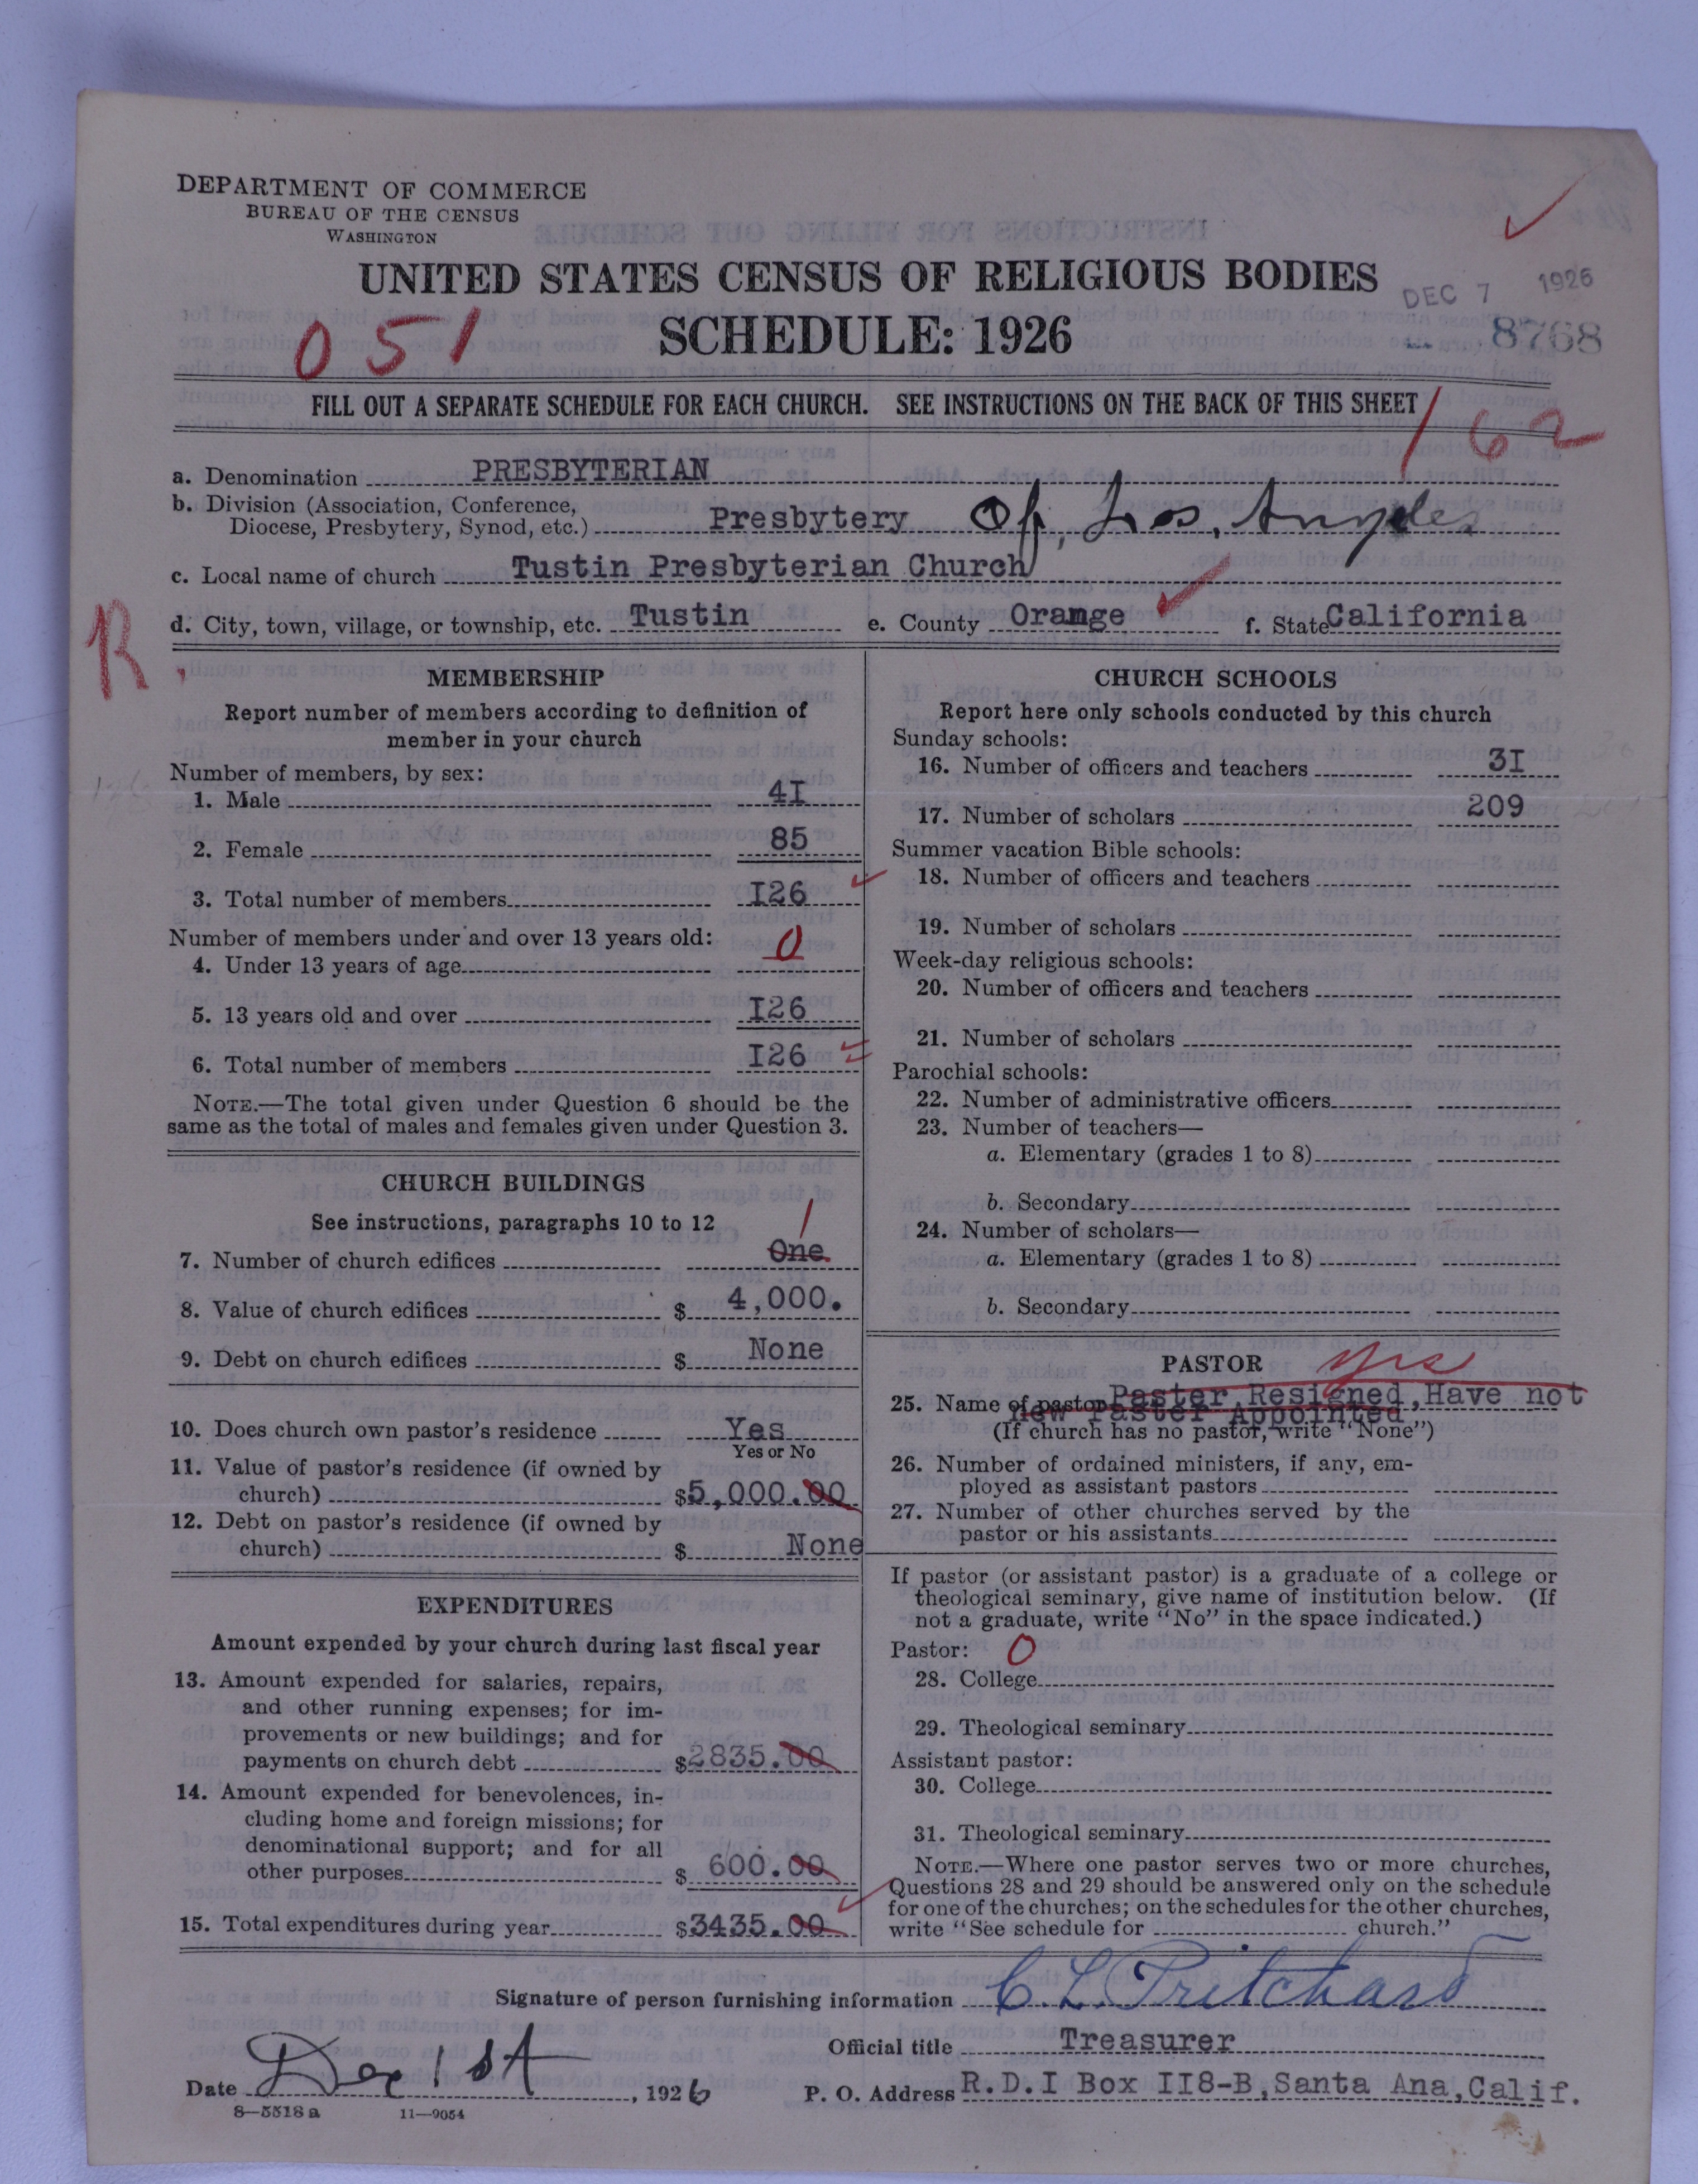 DEPARTMENT OF COMMERCE
BUREAU OF THE CENSUS
WASHINGTON
UNITED STATES CENSUS OF RELIGIOUS BODIES
DEC 7 1926
051
SCHEDULE: 1926
8768
FILL OUT A SEPARATE SCHEDULE FOR EACH CHURCH. SEE INSTRUCTIONS ON THE BACK OF THIS SHEET
162
a. Denomination PRESBYTERIAN
b. Division (Association, Conference,
Diocese, Presbytery, Synod, etc.) Presbytery Of, Los, Angeles
c. Local name of church Tustin Presbyterian Church
d. City, town, village, or township, etc. Tustin e. County Orange f. State California
R.
MEMBERSHIP
Report number of members according to definition of
member in your church
Number of members, by sex:
1. Male 4I
2. Female 85
3. Total number of members I26
Number of members under and over 13 years old:
4. Under 13 years of age 0
5. 13 years old and over I26
6. Total number of members I26
NOTE.—The total given under Question 6 should be the
same as the total of males and females given under Question 3.
CHURCH BUILDINGS
See instructions, paragraphs 10 to 12
1
7. Number of church edifices One
8. Value of church edifices $ 4,000.
9. Debt on church edifices $ None
10. Does church own pastor's residence Yes
Yes or No
11. Value of pastor's residence (if owned by
church) $5,000.00
12. Debt on pastor's residence (if owned by
church) $ None
EXPENDITURES
Amount expended by your church during last fiscal year
13. Amount expended for salaries, repairs,
and other running expenses; for im-
provements or new buildings; and for
payments on church debt $2835.00
14. Amount expended for benevolences, in-
cluding home and foreign missions; for
denominational support; and for all
other purposes $ 600.00
15. Total expenditures during year $3435.00
CHURCH SCHOOLS
Report here only schools conducted by this church
Sunday schools:
16. Number of officers and teachers 3I
17. Number of scholars 209
Summer vacation Bible schools:
18. Number of officers and teachers
19. Number of scholars
Week-day religious schools:
20. Number of officers and teachers
21. Number of scholars
Parochial schools:
22. Number of administrative officers
23. Number of teachers—
a. Elementary (grades 1 to 8)
b. Secondary
24. Number of scholars—
a. Elementary (grades 1 to 8)
b. Secondary
PASTOR yes
25. Name of pastor Paster Resigned, Have not
New Paster Appointed
(If church has no pastor, write "None")
26. Number of ordained ministers, if any, em-
ployed as assistant pastors
27. Number of other churches served by the
pastor or his assistants
If pastor (or assistant pastor) is a graduate of a college or
theological seminary, give name of institution below. (If
not a graduate, write "No" in the space indicated.)
Pastor: 0
28. College
29. Theological seminary
Assistant pastor:
30. College
31. Theological seminary
NOTE.—Where one pastor serves two or more churches,
Questions 28 and 29 should be answered only on the schedule
for one of the churches; on the schedules for the other churches,
write "See schedule for church."
Signature of person furnishing information C. L. Pritchard
Official title Treasurer
Date Dec 1st, 1926 P. O. Address R.D.I Box II8-B, Santa Ana, Calif.
8—5518a 11—9054